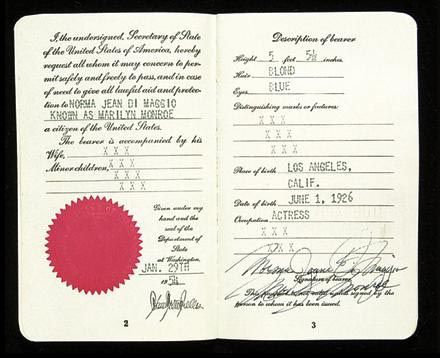 I, the undersigned, Secretary of State
of the United States of America, hereby
request all whom it may concern to per-
mit safely and freely to pass, and in case
of need to give all lawful aid and protec-
tion to NORMA JEAN DI MAGGIO
KNOWN AS MARILYN MONROE
a citizen of the United States.
The bearer is accompanied by his
Wife, X X X
Minor children, X X X
X X X
Given under my
hand and the
seal of the
Department of
State
at Washington,
JAN. 29TH
1954
2
Description of bearer
Height 5 feet 5½ inches
Hair BLOND
Eyes BLUE
Distinguishing marks or features:
X X X
X X X
X X X
Place of birth LOS ANGELES,
CALIF.
Date of birth JUNE 1, 1926
Occupation ACTRESS
X X X
XXX
Norma Jeane Di Maggio
Signature of bearer
Monroe
signed by the
person to whom it has been issued.
3